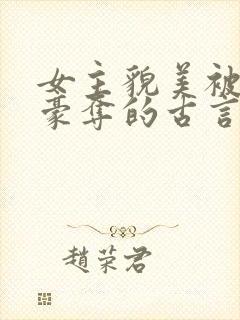 女主貌美被
豪夺的古言
赵荣君